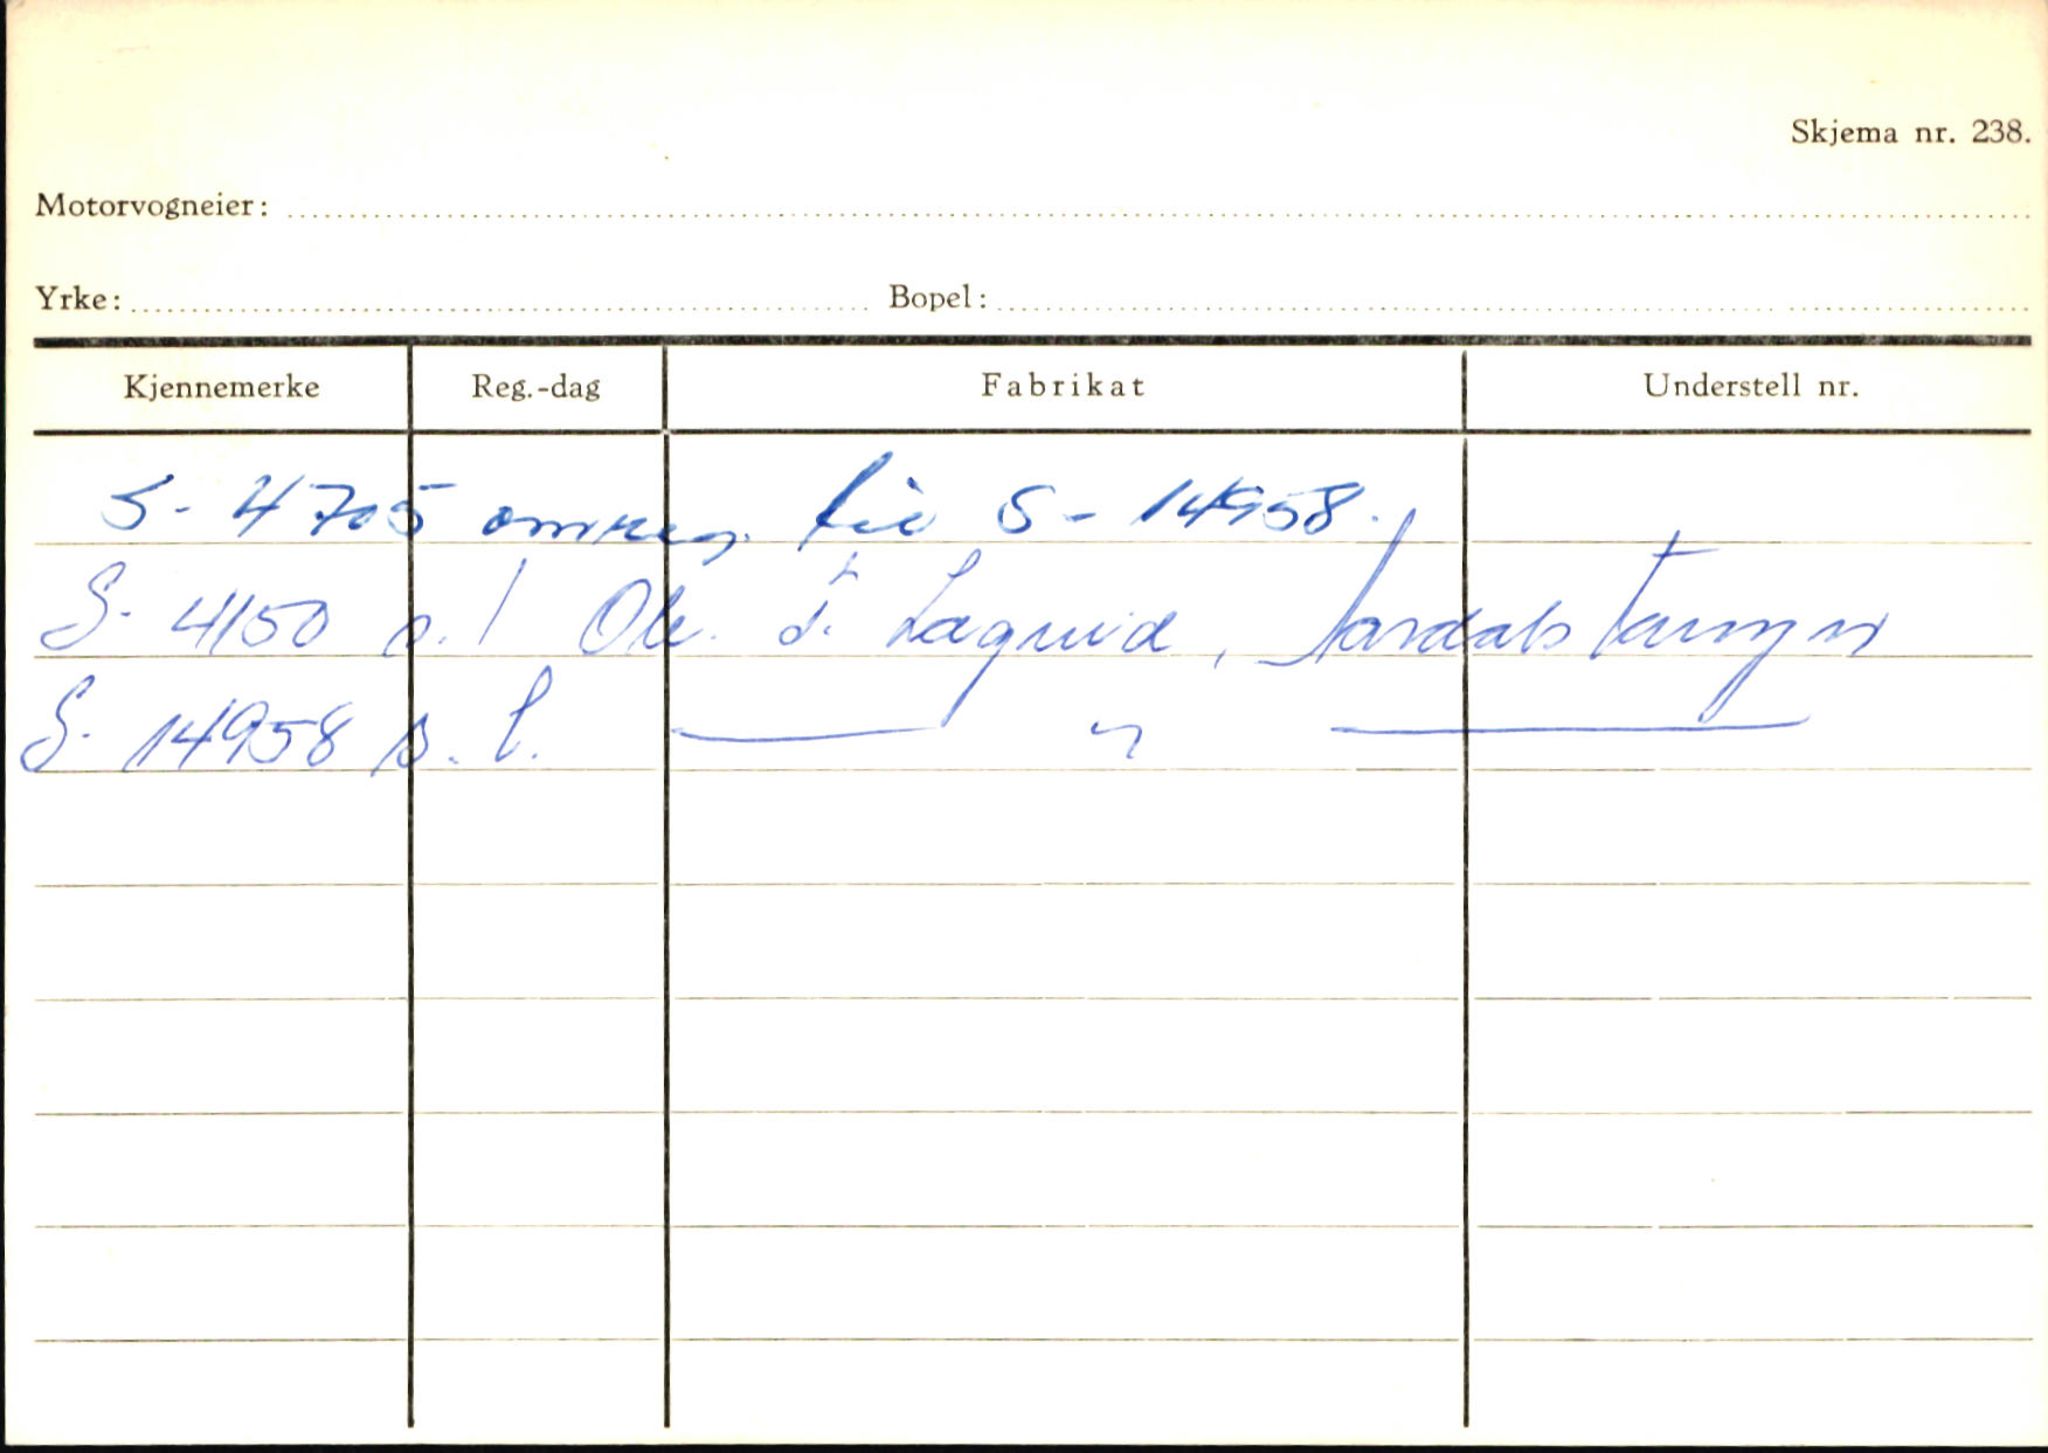 Skjema nr. 238.
Motorvogneier:
Yrke: Bopel:
Kjennemerke Reg.-dag Fabrikat Understell nr.
S- 4705 omreg. til S- 14958.
S- 4150 s. t Ole J. Lægreid, Årdalstangen
S- 14958 s. t. — " —